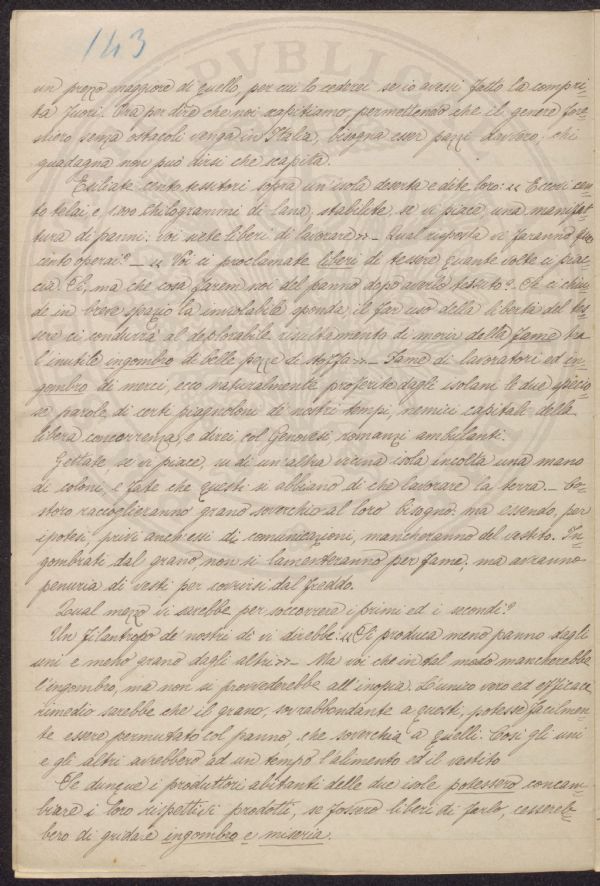 143
un prezzo maggiore di quello, per cui lo cederei se io avessi fatto la compri-
ta fuori. Ora per dire che noi scapitiamo, permettendo che il genere fore-
stiero senza ostacoli venga in Italia, bisogna esser pazzi davvero; chi
guadagna non può dirsi che scapita.
Esiliate cento tessitori sopra un'isola deserta e dite loro: "Eccovi cen-
to telai, e 1200 chilogrammi di lana, stabilite, se vi piace, una manifat-
tura di panni: voi siete liberi di lavorare" - Qual risposta vi faranno que'
cento operai? - "Voi ci proclamate liberi di tessere quante volte ci piac-
cia. Eh, ma che cosa farem noi del panno dopo averlo tessuto? Se ci chiu-
de in breve spazio la inviolabile sponda il far uso della libertà del tes-
sere ci condurrà al deplorabile risultamento di morir della fame tra
l'inutile ingombro di belle pezze di stoffa" - Fame di lavoratori ed in-
gombro di merci, ecco naturalmente proferite dagli isolani le due specio-
se parole di certi piagnoloni di nostri tempi, nemici capitali della
libera concorrenza, e direi col Genovesi romanzi ambulanti.
Gettate, se vi piace, su di un'altra vicina isola incolta una mano
di coloni e fate che questi si abbiano di che lavorare la terra. - Co-
storo raccoglieranno grano soverchio al loro bisogno, ma essendo, per
ipotesi, privi anch'essi di comunicazioni, mancheranno del vestito. In-
gombrati dal grano, non si lamenteranno per fame, ma avranno
penuria di vesti per covrirsi dal freddo.
Qual mezzo vi sarebbe per soccorrere i primi ed i secondi?
Un filantropo de' nostri dì vi direbbe: "Si produca meno panno dagli
uni e meno grano dagli altri" - Ma voi che in tal modo mancherebbe
l'ingombro, ma non si provvederebbe all'inopia. L'unico vero ed efficace
rimedio sarebbe che il grano, sovrabbondante a questi, potesse facilmen-
te essere permutato col panno, che soverchia a quelli. Così gli uni
e gli altri avrebbero ad un tempo l'alimento ed il vestito.
Se dunque i produttori abitanti delle due isole potessero concam-
biare i loro rispettivi prodotti, se fossero liberi di farlo, cessereb-
bero di gridare ingombro e miseria.